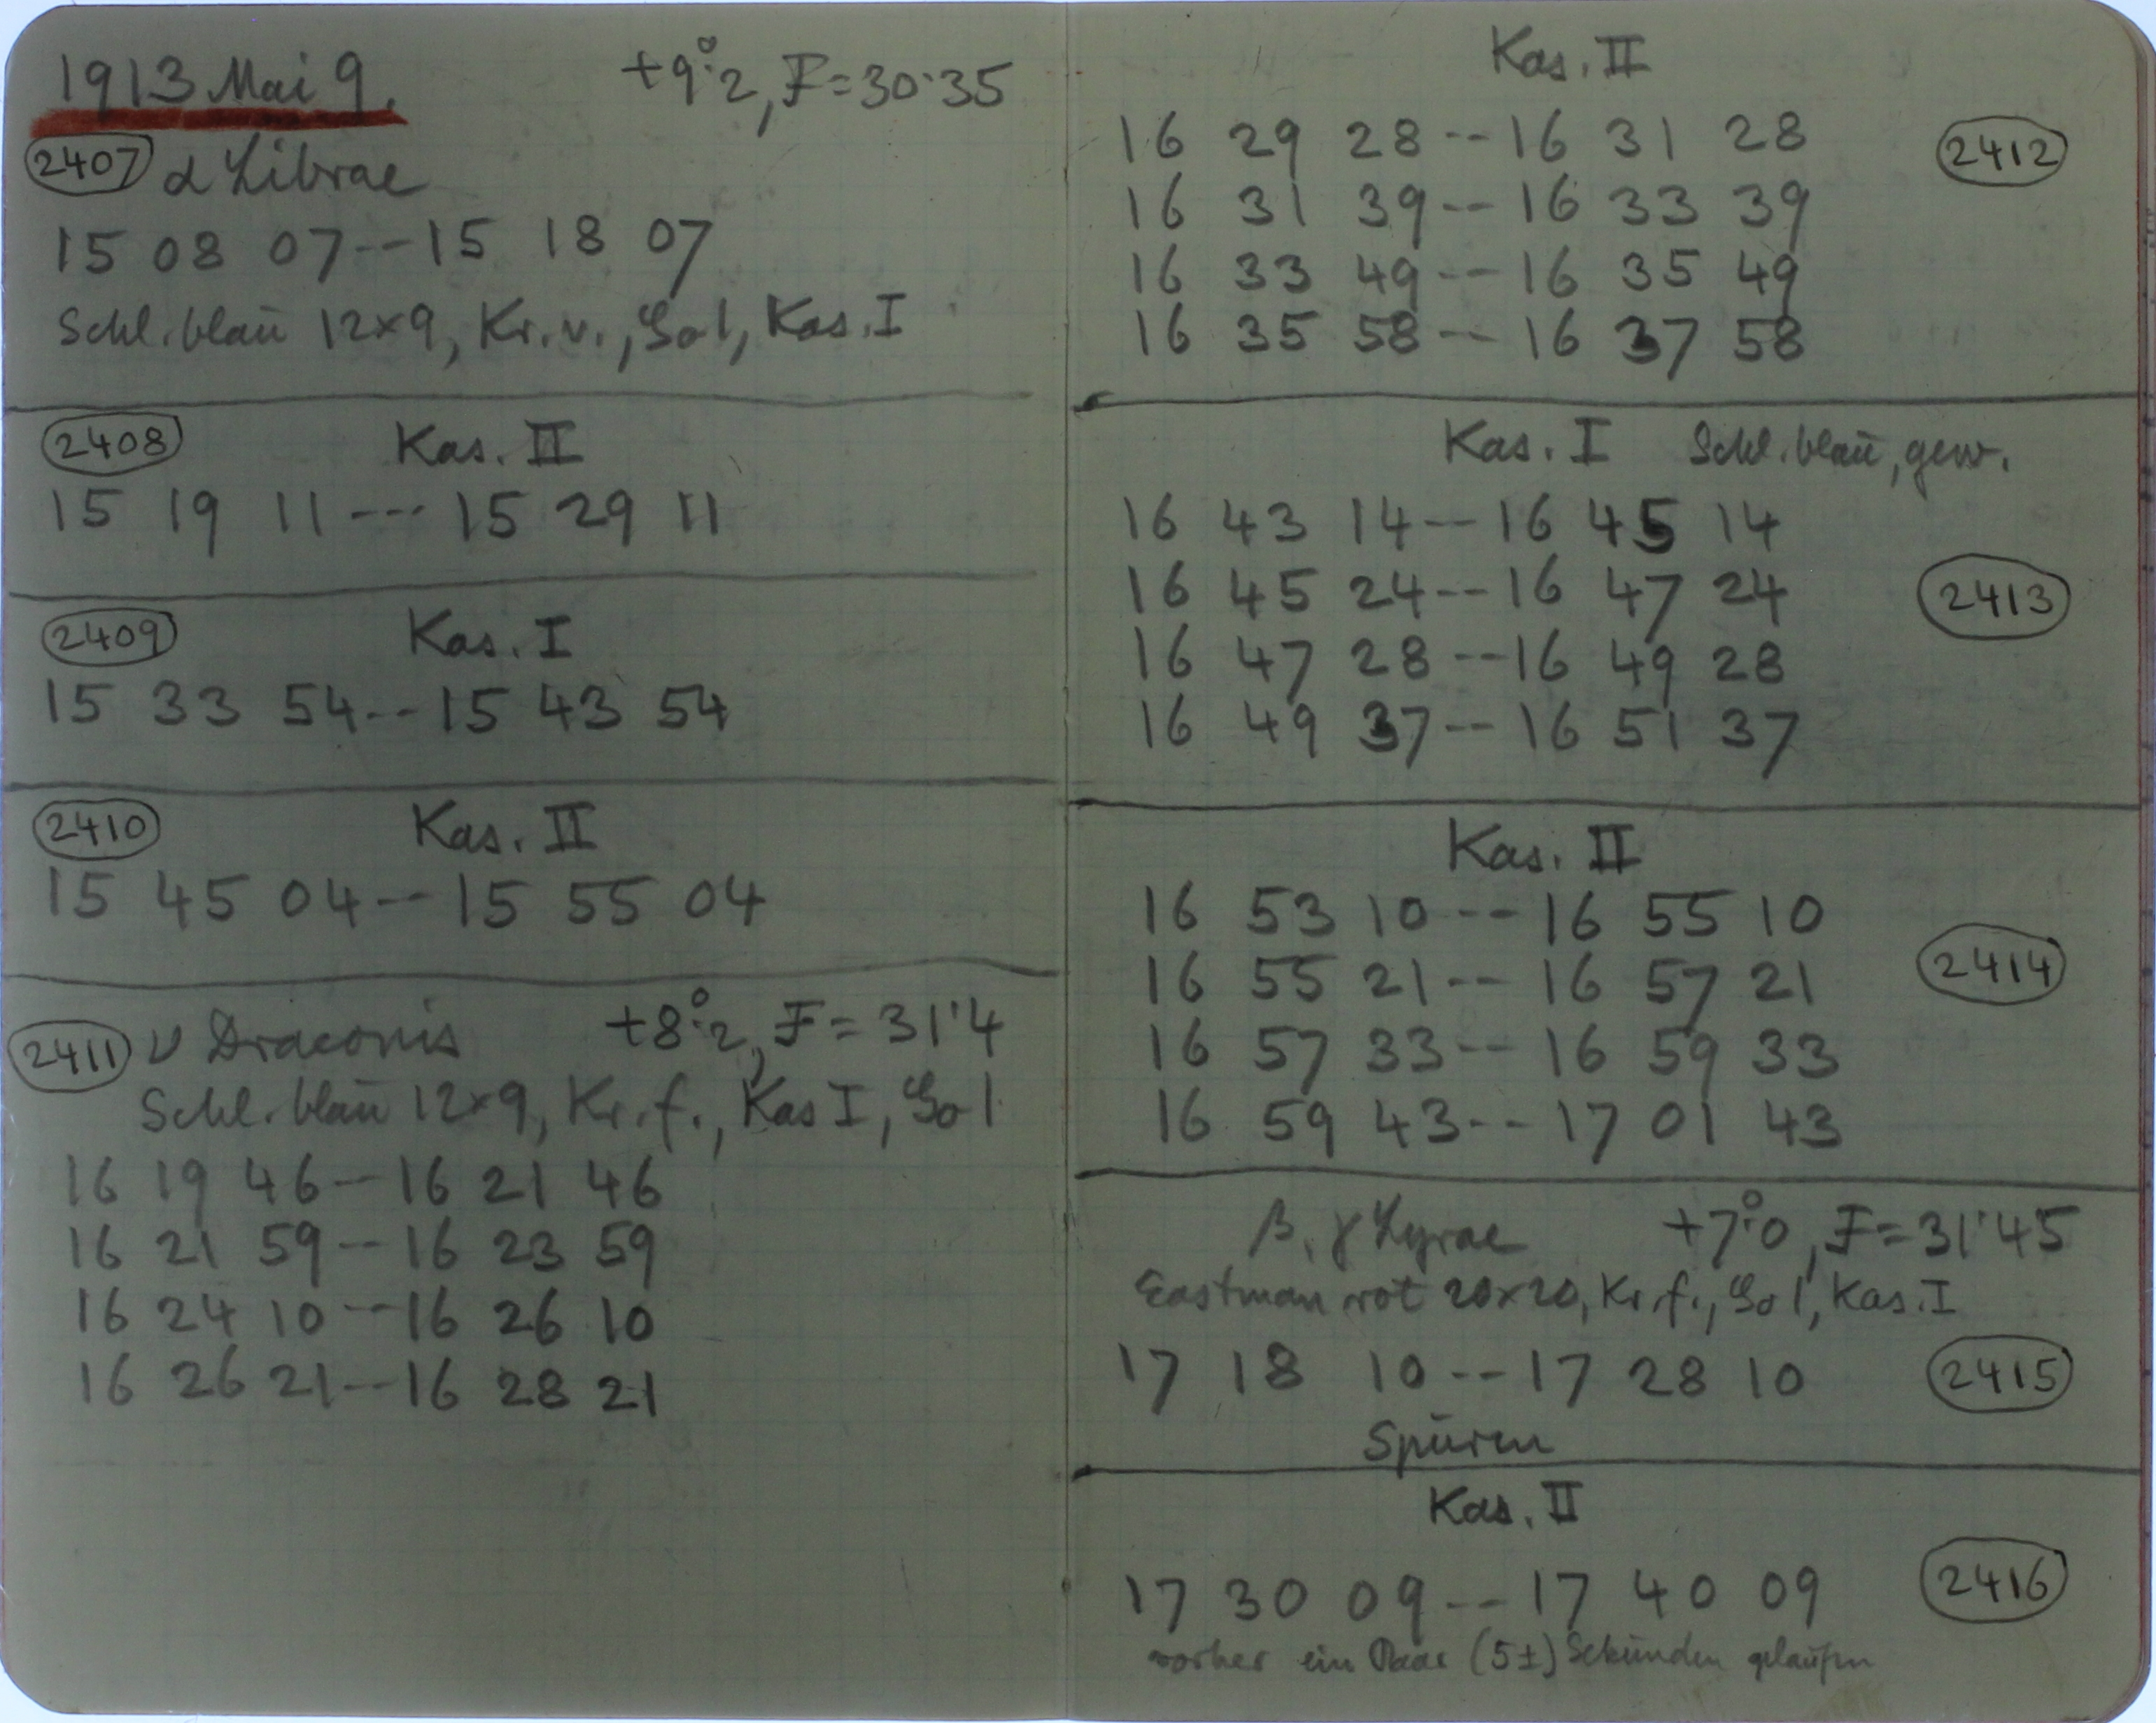 1913 Mai 9. +9°.2, F=30.35
2407 α Librae
15 08 07--15 18 07
Schl. blau 12x9, Kr. v., Kas. I
2408 Kas. II
15 19 11---15 29 11
2409 Kas. I
15 33 54--15 43 54
2410 Kas. II
15 45 04--15 55 04
2411 ν Draconis +8°.2, F=31.4
Schl. blau 12x9, Kr. f., Kas I,
16 19 46--16 21 46
16 21 59--16 23 59
16 24 10--16 26 10
16 26 21--16 28 21
Kas. II
16 29 28--16 31 28 2412
16 31 39--16 33 39
16 33 49--16 35 49
16 35 58--16 37 58
Kas. I Schl. blau, gew.
16 43 14--16 45 14
16 45 24--16 47 24 2413
16 47 28--16 49 28
16 49 37--16 51 37
Kas. II
16 53 10--16 55 10
16 55 21--16 57 21 2414
16 57 33--16 59 33
16 59 43--17 01 43
β, γ Lyrae +7°.0, F=31.45
Eastman rot 20x20, Kr. f., Kas. I
17 18 10--17 28 10 2415
Spuren
Kas. II
17 30 09--17 40 09 2416
vorher ein Paar (5±) Sekunden gelaufen